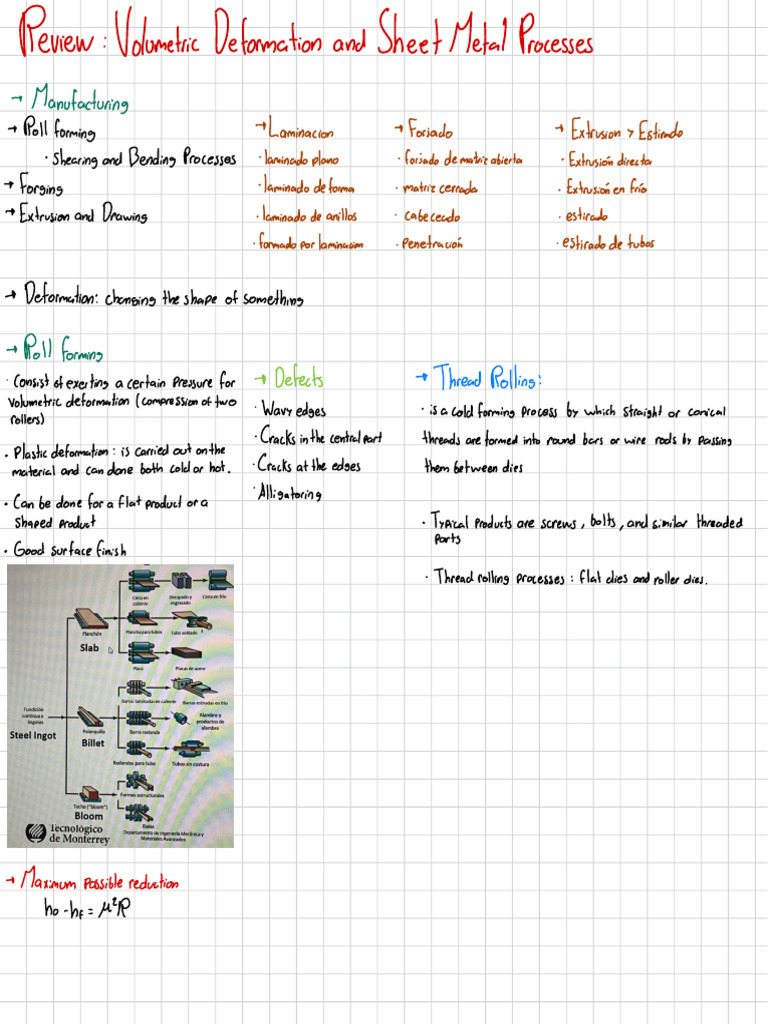 Review: Volumetric Deformation and Sheet Metal Processes
→ Manufacturing
→ Roll forming
· Shearing and Bending Processes
→ Forging
→ Extrusion and Drawing
→ Laminacion
· laminado plano
· laminado de forma
· laminado de anillos
· formado por laminacion
→ Forjado
· forjado de matriz abierta
· matriz cerrada
· cabeceado
· Penetración
→ Extrusion > Estirado
· Extrusión directa
· Extrusión en frío
· estirado
· estirado de tubos
→ Deformation: changing the shape of something
→ Roll forming
· Consist of exerting a certain pressure for
volumetric deformation (compression of two
rollers)
· Plastic deformation: is carried out on the
material and can done both cold or hot.
· Can be done for a flat product or a
shaped product
· Good surface finish
→ Defects
· Wavy edges
· Cracks in the central part
· Cracks at the edges
· Alligatoring
→ Thread Rolling:
· is a cold forming process by which straight or conical
threads are formed into round bars or wire rods by passing
them between dies
· Typical products are screws, bolts, and similar threaded
parts
· Thread rolling processes: flat dies and roller dies.
Cinta en
caliente
Decapado y
engrasado
Cinta en frío
Planchón
Slab
Plancha para tubos
Tubo soldado
Plano
Placas de acero
Fundición
continua o
lingotes
Steel Ingot
Palanquilla
Billet
Barras laminadas en caliente
Barras estiradas en frío
Barra redonda
Alambre y
productos de
alambre
Redondos para tubo
Tubos sin costura
Tocho ("bloom")
Bloom
Formas estructurales
Rieles
Tecnológico
de Monterrey
Departamento de Ingeniería Mecánica y
Materiales Avanzados
→ Maximum possible reduction
h₀ - h_f = μ²R